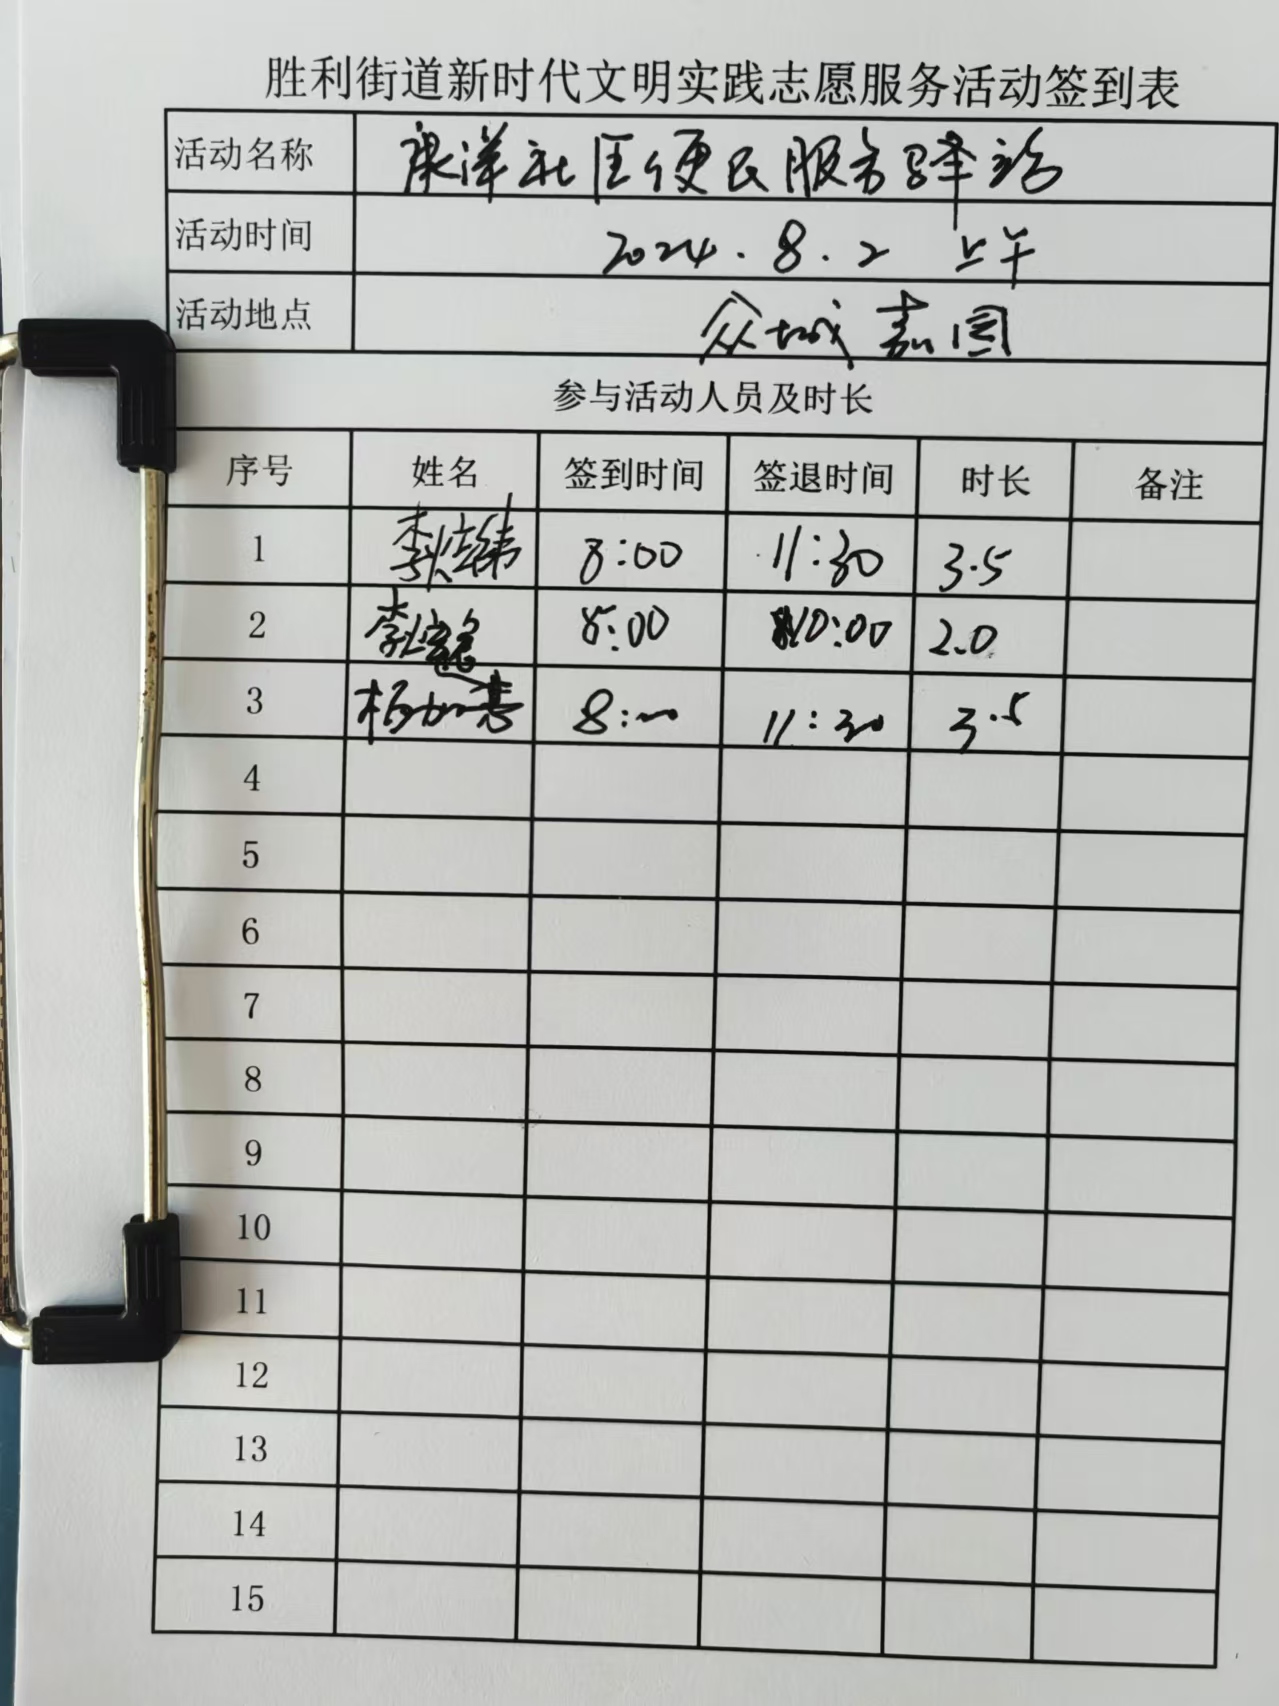 胜利街道新时代文明实践志愿服务活动签到表
活动名称 康洋社区便民服务驿站
活动时间 2024.8.2 上午
活动地点 众城嘉园
参与活动人员及时长
序号 姓名 签到时间 签退时间 时长 备注
1 李 8:00 11:30 3.5
2 李 8:00 10:00 2.0
3 杨加喜 8:00 11:30 3.5
4
5
6
7
8
9
10
11
12
13
14
15